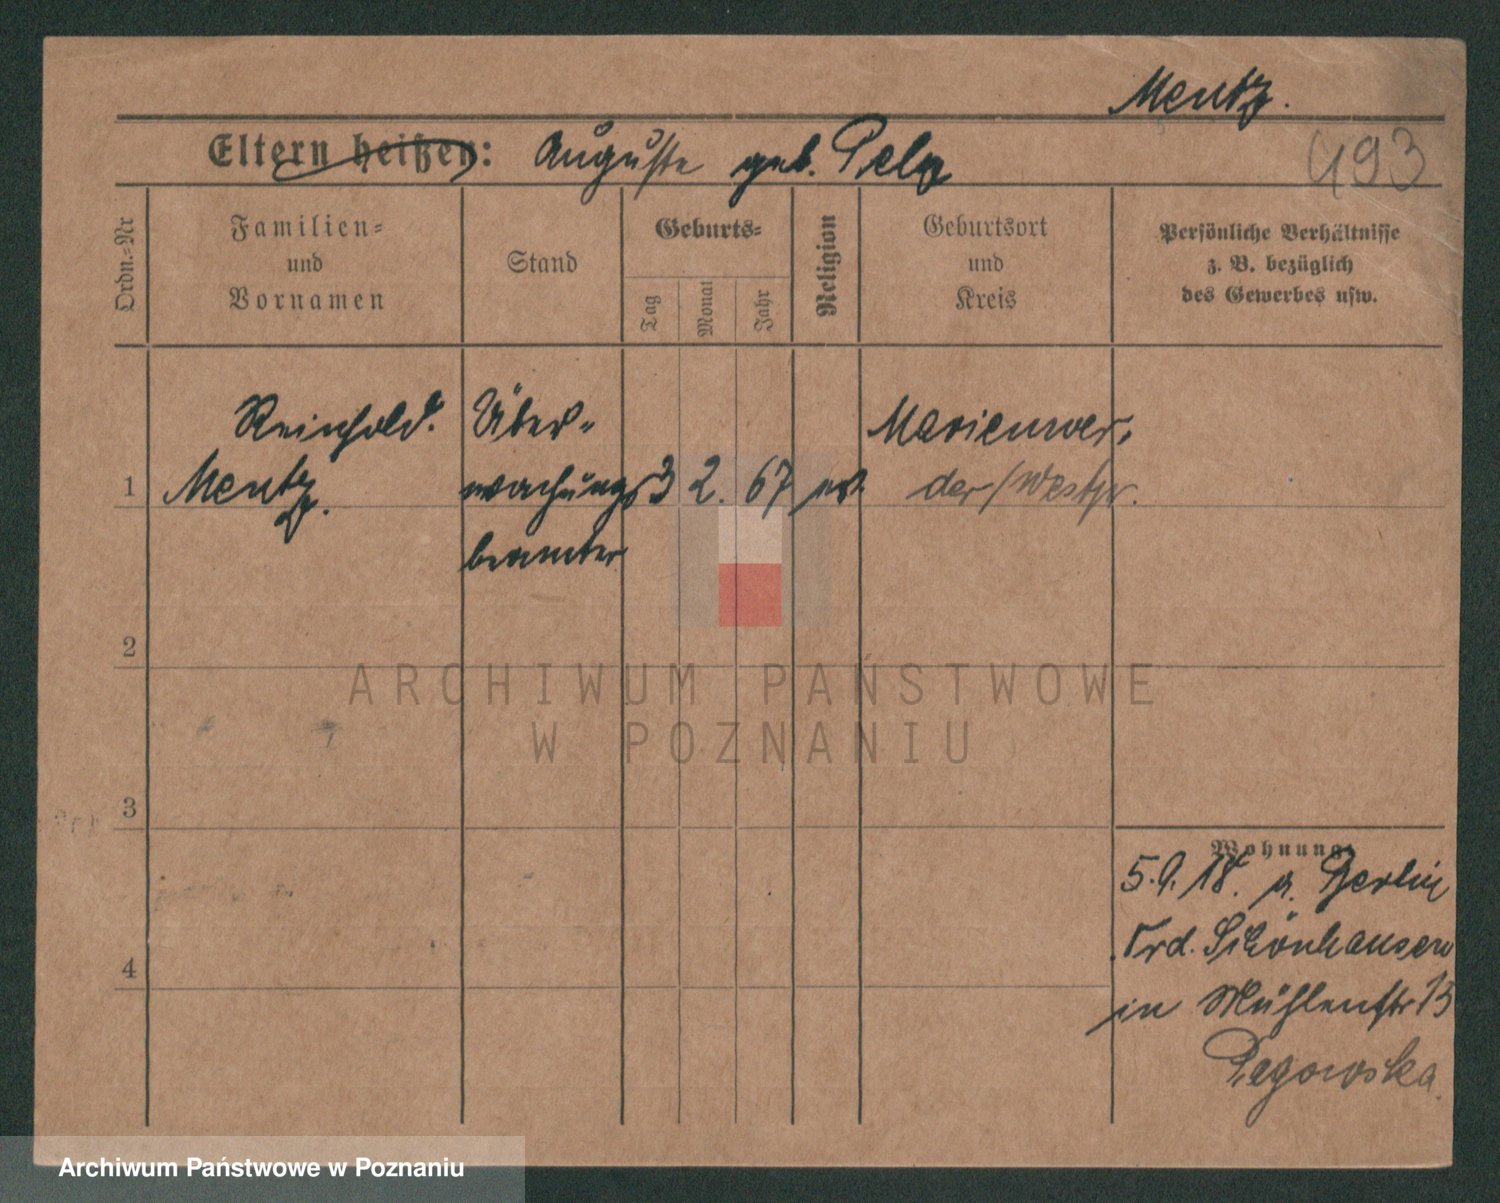 Mentz.
Eltern heißen: Auguste geb. Pelz
493
Ordn.=Nr
Familien=
und
Vornamen
Stand
Geburts=
Tag
Monat
Jahr
Religion
Geburtsort
und
Kreis
Persönliche Verhältnisse
z. B. bezüglich
des Gewerbes usw.
Reinhold. Über= Marienwer.
1 Mentz. wachungs 3 2. 67 ev. der/Westpr.
beamter
2
ARCHIWUM PAŃSTWOWE
W POZNANIU
3
Wohnung:
5.9.18. a. Berlin
Nrd. Schönhausen
4
in Mühlenstr 13
Archiwum Państwowe w Poznaniu